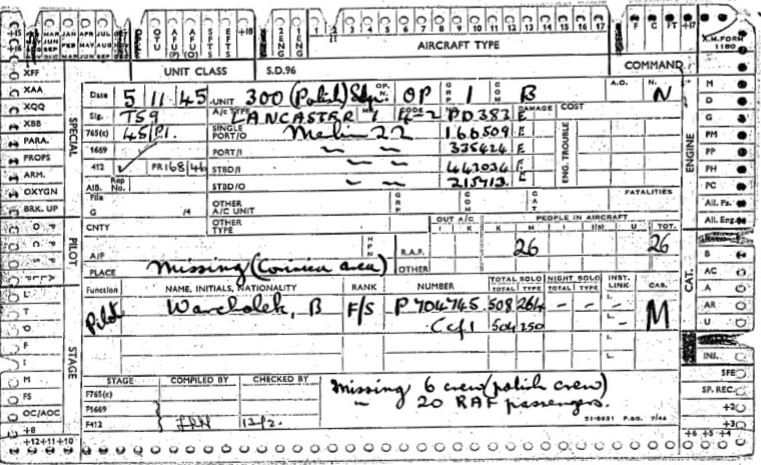 JAN FEB MAR APR MAY JUN JUL AUG
OTU AFU (P) AFU (O) SFTS EFTS +18
2 ENG 1 ENG 1 2 3 4 5 6 7 8 9 10 11 12 13 14 15 16 17
F C FT +17
A.M. FORM 1180
AIRCRAFT TYPE
UNIT CLASS S.D.96 COMMAND
Date 5 11 45 UNIT 300 (Polish) Sqn. OP.N. OP GRP 1 COM B A.O. N. N
Sig. T59 A/C TYPE LANCASTER MK 1 CODE 4-2 PD383 E DAMAGE COST
765(c) 45/P1. SINGLE PORT/O Merlin 22 166509 E
1669 PORT/I " " 335424 E
412 ✓ PR168/46 STBD/I " " 443034 E
AIB. Rep No. STBD/O " " 215713 E
ENG. TROUBLE
File G /4 OTHER A/C UNIT GRP COM CAT FATALITIES
CNTY OTHER TYPE OUT A/C I K PEOPLE IN AIRCRAFT K M I I(s) U TOT.
A/F HFN R.A.F. 26 26
PLACE Missing (Corsica area) OTHER
Function NAME, INITIALS, NATIONALITY RANK NUMBER TOTAL SOLO TOTAL TYPE NIGHT SOLO TOTAL TYPE INST. LINK CAS.
Pilot Warcholek, B F/S P 704745 508 264 – – I. – M
Ccf1 504 250 L. –
STAGE COMPILED BY CHECKED BY
F765(c)
F1669
F412 12/2.
Missing 6 crew (polish crew)
" 20 RAF passengers.
51-8831 P.60. 7/44
XFF
XAA
XQQ
XBB
PARA.
PROPS
ARM.
OXYGN
BRK. UP
SPECIAL
PILOT
STAGE
L
T
O
F
I
M
FS
OC/AOC
+8
+12 +11 +10
M
D
G
PM
PP
PH
PC
All. Pa.
All. Eng.
ENGINE
B
AC
A
AR
U
CAT.
INJ.
SFE
SP. REC.
+2
+3
+6 +5 +4